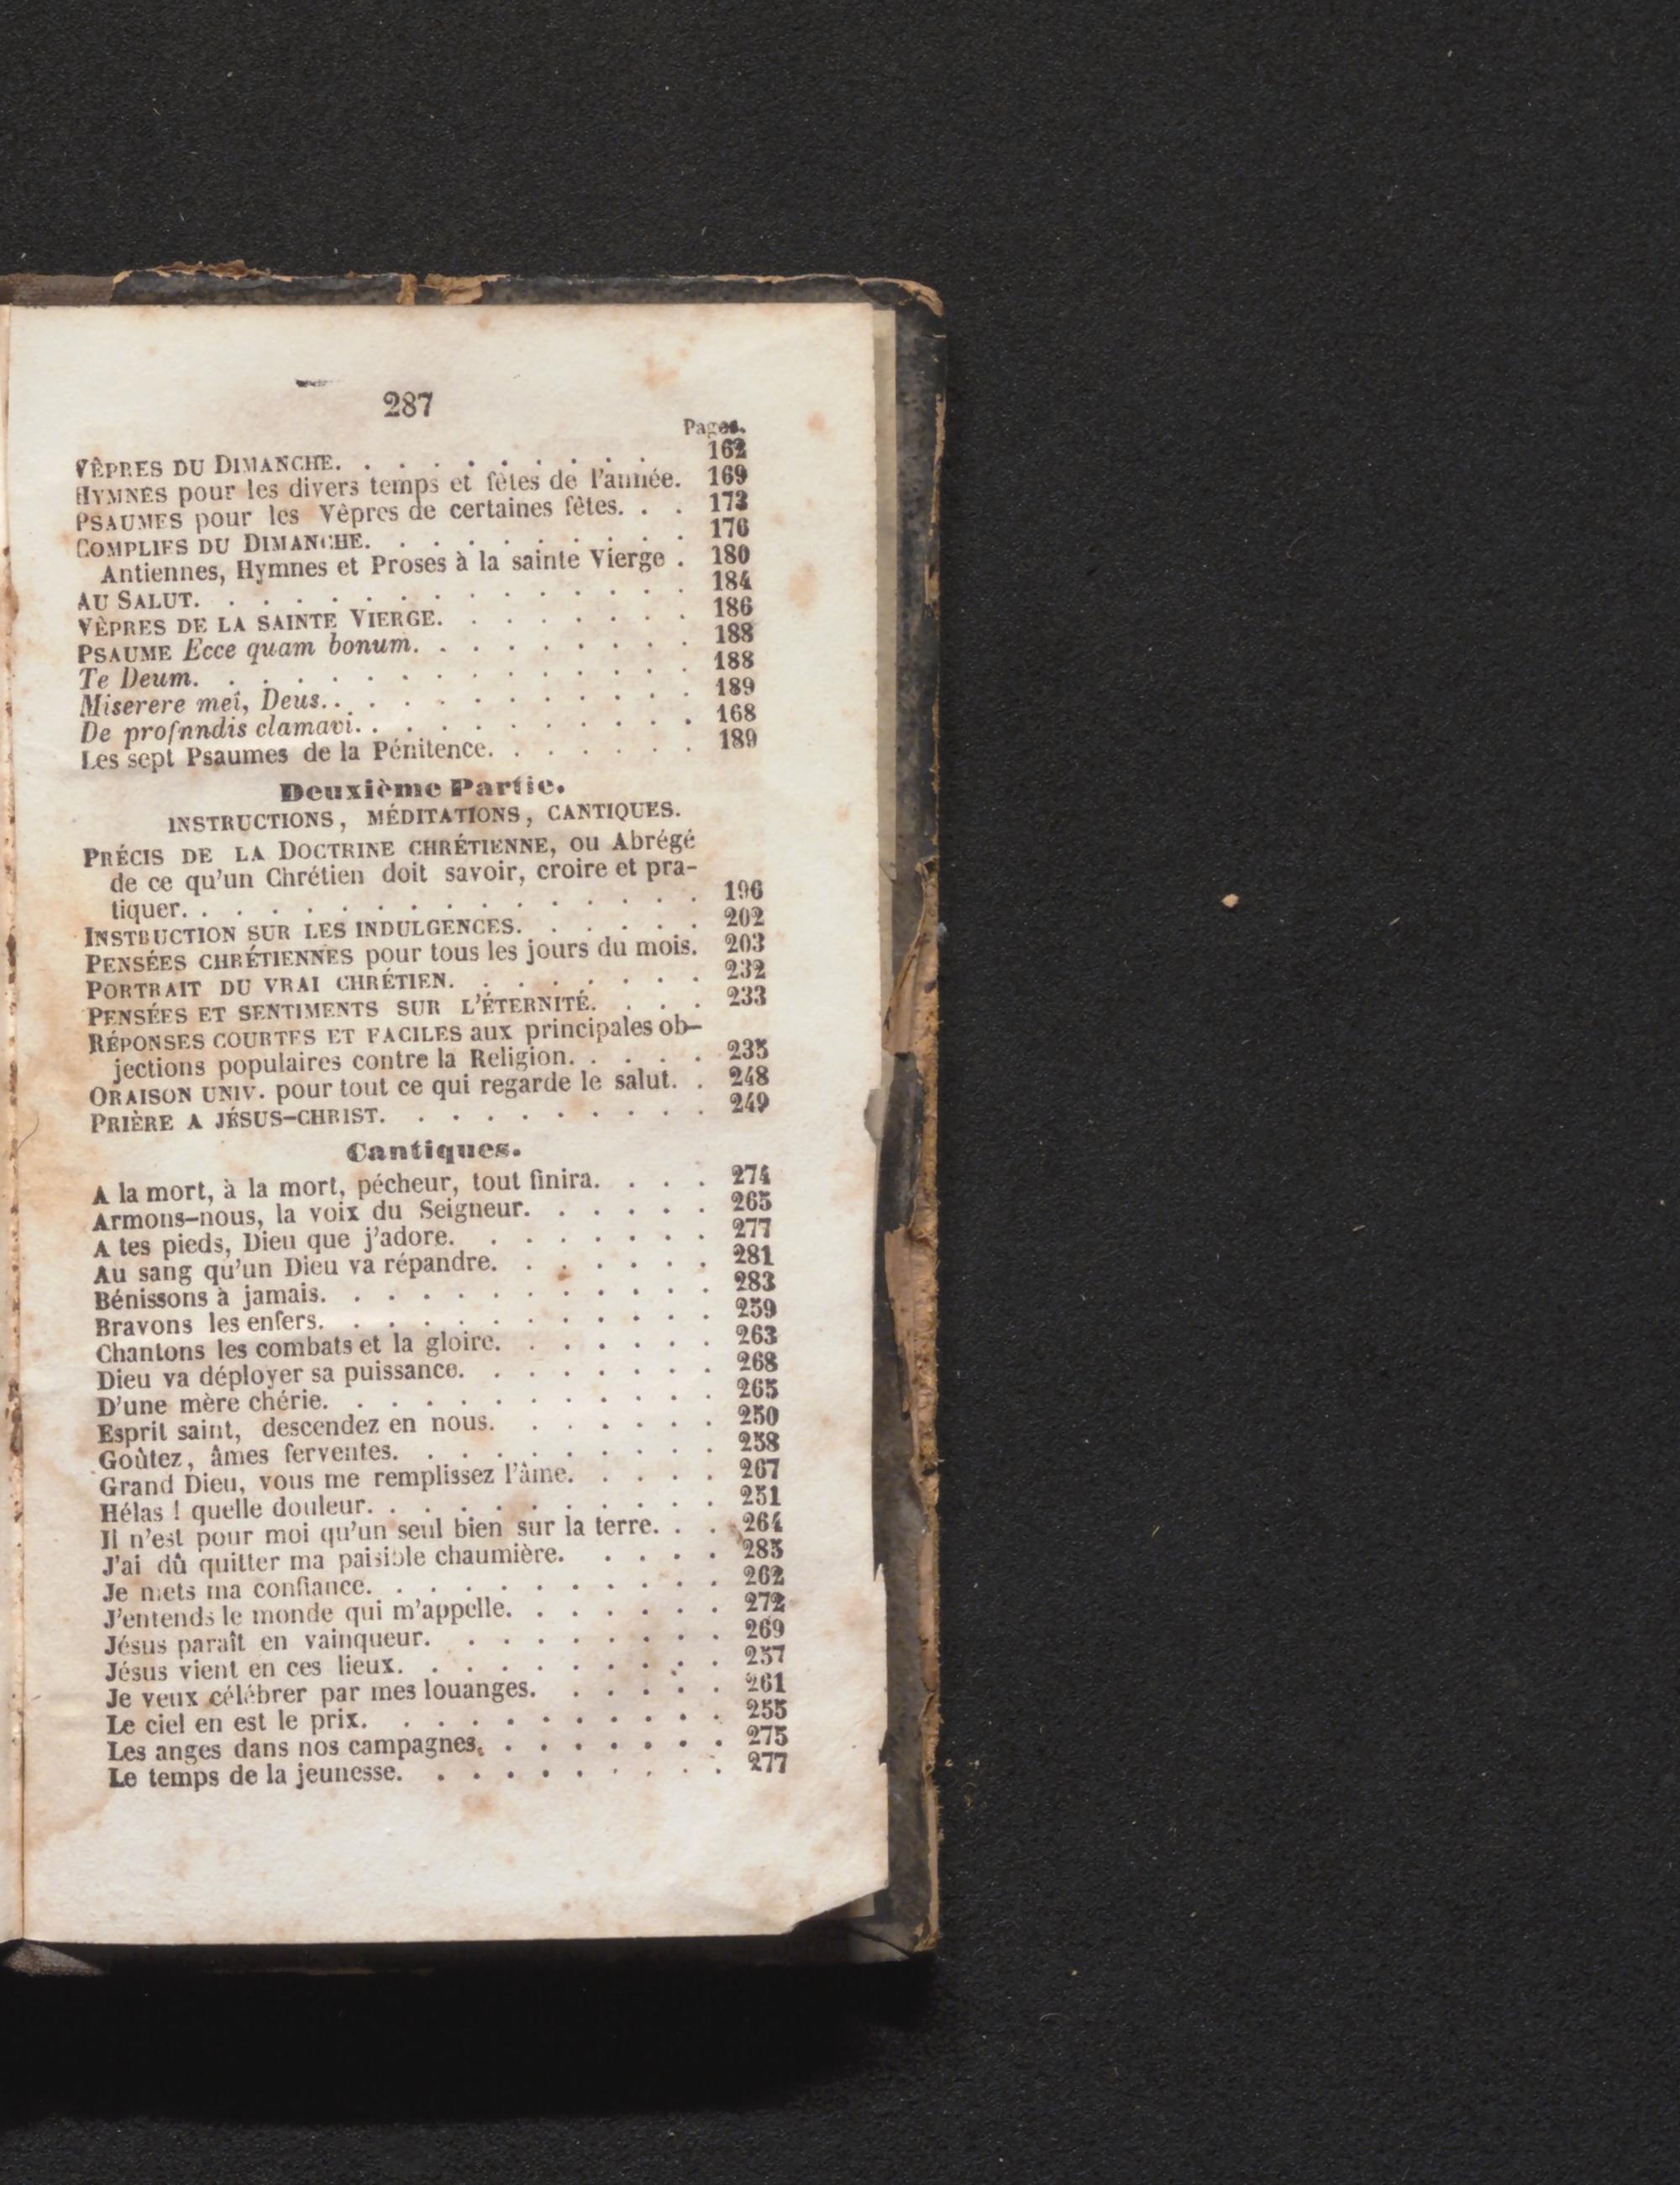 287
Pages.
VÊPRES DU DIMANCHE. . . . . . . . . . 162
HYMNES pour les divers temps et fêtes de l'année. 169
PSAUMES pour les Vêpres de certaines fêtes. . . 173
COMPLIES DU DIMANCHE. . . . . . . . . . 176
Antiennes, Hymnes et Proses à la sainte Vierge . 180
AU SALUT. . . . . . . . . . . . . . . 184
VÊPRES DE LA SAINTE VIERGE. . . . . . . . 186
PSAUME Ecce quam bonum. . . . . . . . . 188
Te Deum. . . . . . . . . . . . . . . 188
Miserere meî, Deus. . . . . . . . . . . . 189
De profnndis clamavi. . . . . . . . . . . 168
Les sept Psaumes de la Pénitence. . . . . . . 189
Deuxième Partie.
INSTRUCTIONS, MÉDITATIONS, CANTIQUES.
PRÉCIS DE LA DOCTRINE CHRÉTIENNE, ou Abrégé
de ce qu'un Chrétien doit savoir, croire et pra-
tiquer. . . . . . . . . . . . . . . . 196
INSTBUCTION SUR LES INDULGENCES. . . . . . 202
PENSÉES CHRÉTIENNES pour tous les jours du mois. 203
PORTRAIT DU VRAI CHRÉTIEN. . . . . . . . 232
PENSÉES ET SENTIMENTS SUR L'ÉTERNITÉ. . . . 233
RÉPONSES COURTES ET FACILES aux principales ob-
jections populaires contre la Religion. . . . . 235
ORAISON UNIV. pour tout ce qui regarde le salut. . 248
PRIÈRE A JÉSUS-CHRIST. . . . . . . . . . 249
Cantiques.
A la mort, à la mort, pécheur, tout finira. . . . 274
Armons-nous, la voix du Seigneur. . . . . . 265
A tes pieds, Dieu que j'adore. . . . . . . . 277
Au sang qu'un Dieu va répandre. . . . . . . 281
Bénissons à jamais. . . . . . . . . . . . 283
Bravons les enfers. . . . . . . . . . . . 259
Chantons les combats et la gloire. . . . . . . 263
Dieu va déployer sa puissance. . . . . . . . 268
D'une mère chérie. . . . . . . . . . . . 265
Esprit saint, descendez en nous. . . . . . . 250
Goûtez, âmes ferventes. . . . . . . . . . 258
Grand Dieu, vous me remplissez l'âme. . . . . 267
Hélas ! quelle douleur. . . . . . . . . . . 251
Il n'est pour moi qu'un seul bien sur la terre. . . 264
J'ai dû quitter ma paisible chaumière. . . . . 285
Je mets ma confiance. . . . . . . . . . . 262
J'entends le monde qui m'appelle. . . . . . . 272
Jésus paraît en vainqueur. . . . . . . . . 269
Jésus vient en ces lieux. . . . . . . . . . 257
Je veux célébrer par mes louanges. . . . . . 261
Le ciel en est le prix. . . . . . . . . . . 255
Les anges dans nos campagnes. . . . . . . . 275
Le temps de la jeunesse. . . . . . . . . . 277